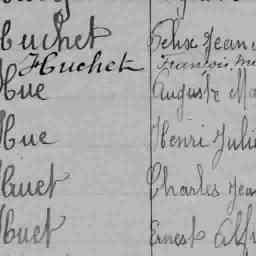 Huchet Félix Jean
Huchet François
Hue Auguste Ma
Hue Henri Juli
Huet Charles Jean
Huet Ernest Alf